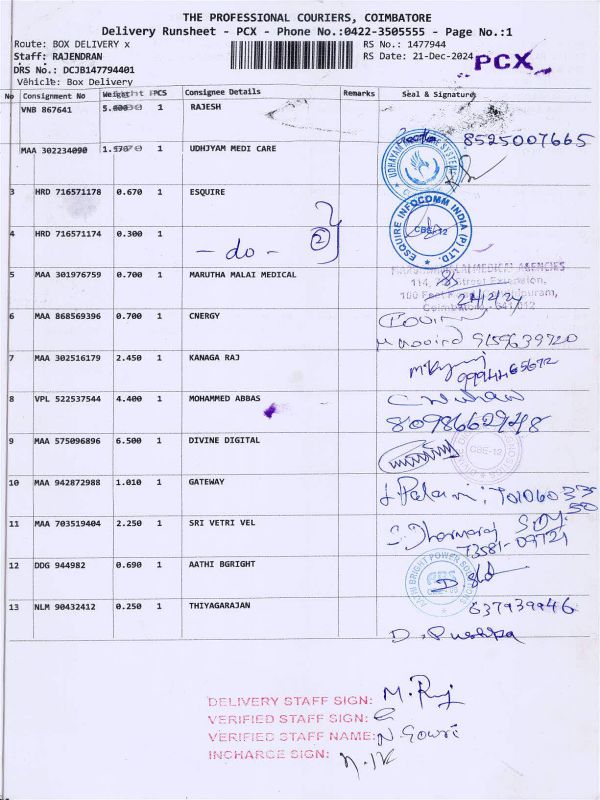 THE PROFESSIONAL COURIERS, COIMBATORE
Delivery Runsheet - PCX - Phone No.:0422-3505555 - Page No.:1
Route: BOX DELIVERY x
RS No.: 1477944
Staff: RAJENDRAN
RS Date: 21-Dec-2024
PCX
DRS No.: DCJB147794401
Vehicle: Box Delivery
No Consignment No Weight PCS Consignee Details Remarks Seal & Signature
VNB 867641 1 RAJESH
8525007665
MAA 302234090 1 UDHJYAM MEDI CARE
3 HRD 716571178 0.670 1 ESQUIRE
ESQUIRE INFOCOMM INDIA (P) LTD.
CBE-12
4 HRD 716571174 0.300 1
- do - 2
5 MAA 301976759 0.700 1 MARUTHA MALAI MEDICAL
6 MAA 868569396 0.700 1 CNERGY
9159639920
7 MAA 302516179 2.450 1 KANAGA RAJ
8 VPL 522537544 4.400 1 MOHAMMED ABBAS
9 MAA 575096896 6.500 1 DIVINE DIGITAL
CBE-12
10 MAA 942872988 1.010 1 GATEWAY
11 MAA 703519404 2.250 1 SRI VETRI VEL
12 DDG 944982 0.690 1 AATHI BGRIGHT
AATHI BRIGHT POWER SOLUTIONS
13 NLM 90432412 0.250 1 THIYAGARAJAN
637939946
D. Pushpa
DELIVERY STAFF SIGN: M. Raj
VERIFIED STAFF SIGN:
VERIFIED STAFF NAME: N. Gowri
INCHARGE SIGN: